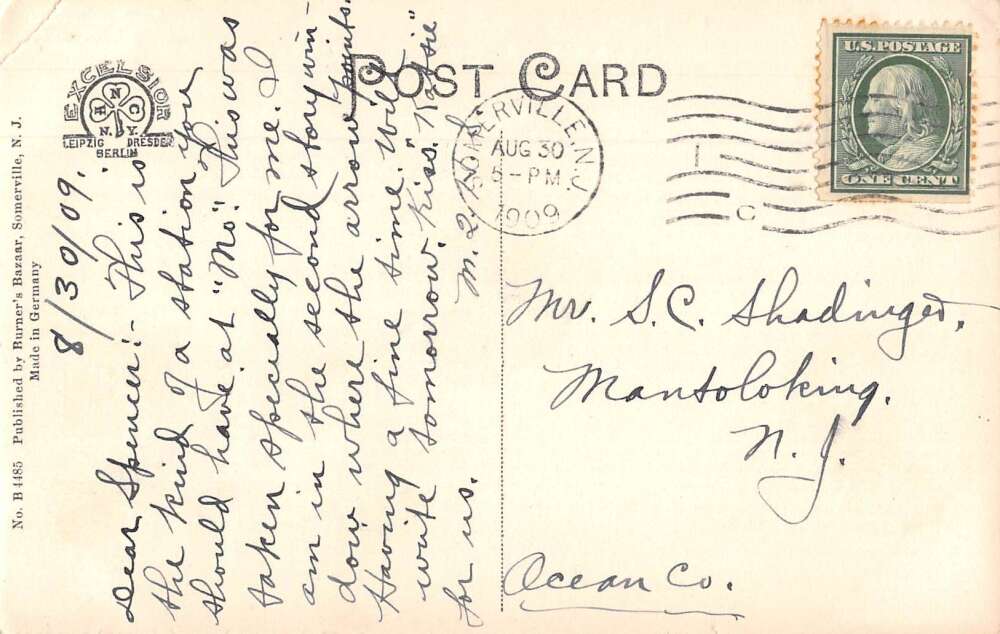 POST CARD
EXCELSIOR
H N C
N.Y.
LEIPZIG DRESDEN
BERLIN
No. B 4485 Published by Burner's Bazaar, Somerville, N. J.
Made in Germany
8/30/09.
Dear Spencer:- This is
the kind of a station you
should have at "Mo". This was
taken specially for me. I
am in the second story win-
dow where the arrow points.
Having a fine time. Will
write tomorrow. Kiss "Tootsie"
for us.
SOMERVILLE, N.J.
AUG 30
5-PM
1909
1
C
U.S. POSTAGE
ONE CENT
Mr. S. C. Shadinger,
Mantoloking,
N. J.
Ocean Co.